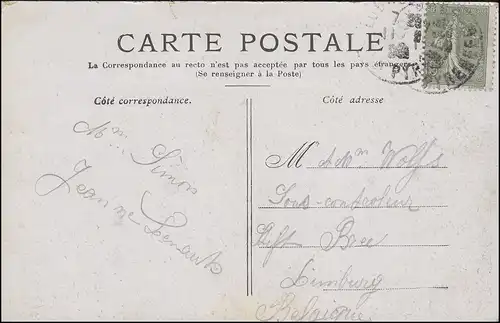 CARTE POSTALE
La Correspondance au recto n'est pas acceptée par tous les pays étrangers
(Se renseigner à la Poste)
Côté correspondance.
Côté adresse
Mme Simon
Jeanne
M et Mme Wolfs
Sous-controleur
Bree
Limburg
Belgique
PYR